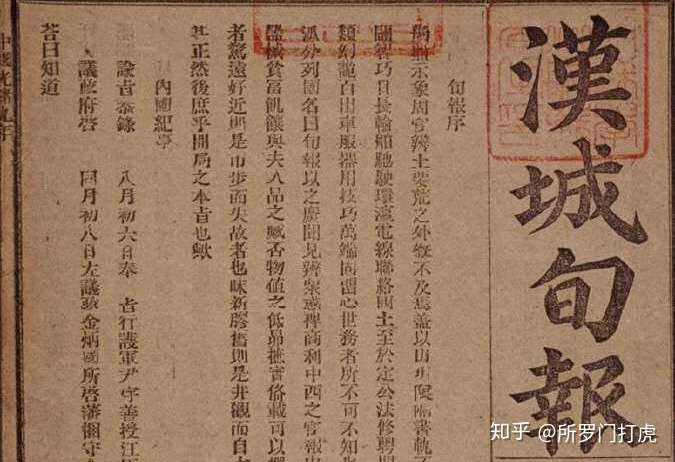 漢城旬報
旬報序
禹鼎示象周官辨土要荒之外槩不及焉盖以山川限隔書軌不
巧日長輪舶馳駛環瀛電線聯絡四土至於定公法修聘
類幻詭百出車服器用技巧萬端固留心世務者所不可不知也
派分列國名曰旬報以之廣聞見辨衆惑裨商利中西之官報申
械貧富飢饟與夫人品之臧否物値之低昻摭實俻載可以
者驚遠好近則是市步而失故者也昧新膠舊則是井觀而自大
其正然後庶乎開局之本旨也歟
內國紀事
諭旨恭錄 八月初六日奉 旨行護軍尹守善授江
議政府啓 同月初八日左議政金炳國所啓藩閫守
答曰知道
知乎 @所罗门打虎